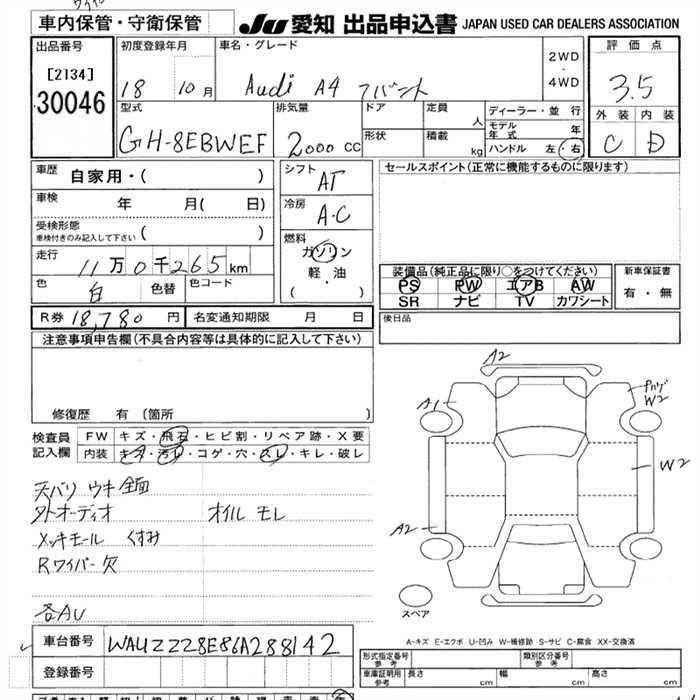 車内保管・守衛保管
JU 愛知 出品申込書 JAPAN USED CAR DEALERS ASSOCIATION
出品番号
[2134]
30046
初度登録年月
18 10月
車名・グレード
Audi A4 アバント
2WD
・
4WD
評価点
3.5
外装 内装
C D
型式
GH-8EBWEF
排気量
2000 CC
ドア
定員
人
形状
積載
kg
ディーラー・並行
モデル年式 年
ハンドル 左・右
車歴
自家用・( )
車検
年 月( 日)
受検形態
車検付きのみ記入して下さい ( )
走行
11万0千265km
色
白
色替
色コード
シフト
AT
冷房
A・C
燃料
ガソリン
軽・油
( )
セールスポイント(正常に機能するものに限ります)
装備品(純正品に限り○をつけてください)
PS PW エアB AW
SR ナビ TV カワシート
新車保証書
有・無
後日品
R券 18,780 円
名変通知期限 月 日
注意事項申告欄(不具合内容等は具体的に記入して下さい)
修復歴 有 〔箇所 〕
検査員記入欄
FW キズ・飛石・ヒビ割・リペア跡・X要
内装 キズ・汚レ・コゲ・穴・スレ・キレ・破レ
天バリ ウキ 全面
外オーディオ オイル モレ
メッキモール くすみ
Rワイパー 欠
各AU
A2
A1
W2
W2
A2
スペア
A-キズ E-エクボ U-凹み W-補修跡 S-サビ C-腐食 XX-交換済
車台番号
WAUZZZ8E86A288142
登録番号
形式指定番号
参考
類別区分番号
参考
車庫証明用
参考
長さ cm
幅 cm
高さ cm